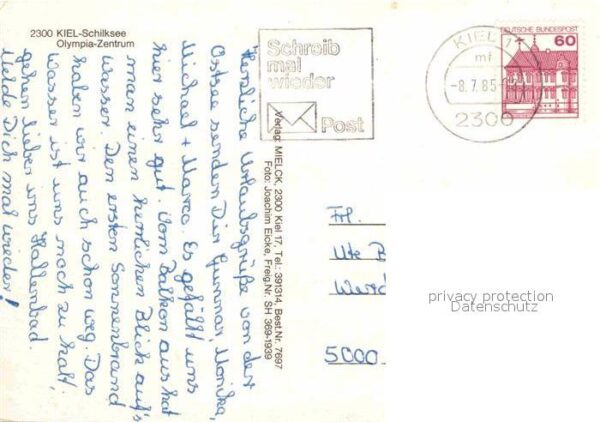 2300 KIEL-Schilksee
Olympia-Zentrum
Schreib
mal
wieder
Post
KIEL 1
mf
-8.7.85-
2300
DEUTSCHE BUNDESPOST
60
Herzliche Urlaubsgrüße von der
Ostsee senden Dir Gunnar, Monika,
Michael + Marco. Es gefällt uns
hier sehr gut. Vom Balkon aus hat
man einen herrlichen Blick auf's
Wasser. Den ersten Sonnenbrand
haben wir auch schon weg. Das
Wasser ist uns noch zu kalt,
gehen lieber ins Hallenbad.
Melde Dich mal wieder!
Verlag: MIELCK, 2300 Kiel 17, Tel.: 391314, Best.Nr. 7697
Foto: Joachim Eicke, Freig.Nr. SH 369-1939
Frl.
Ute
5000
privacy protection
Datenschutz